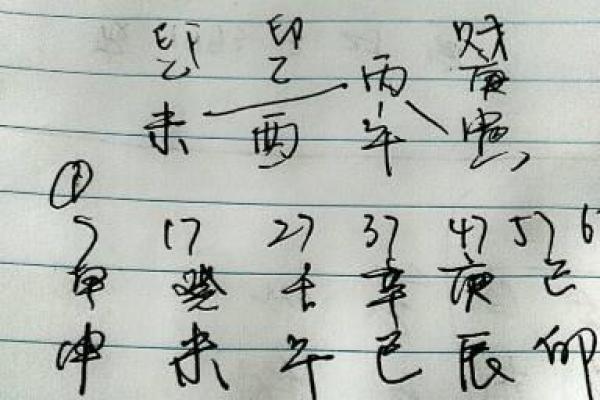 印 印 财
乙 乙 丙 庚
未 酉 午 寅
①
7 17 27 37 47 57 6
甲 癸 壬 辛 庚 己
申 未 午 巳 辰 卯